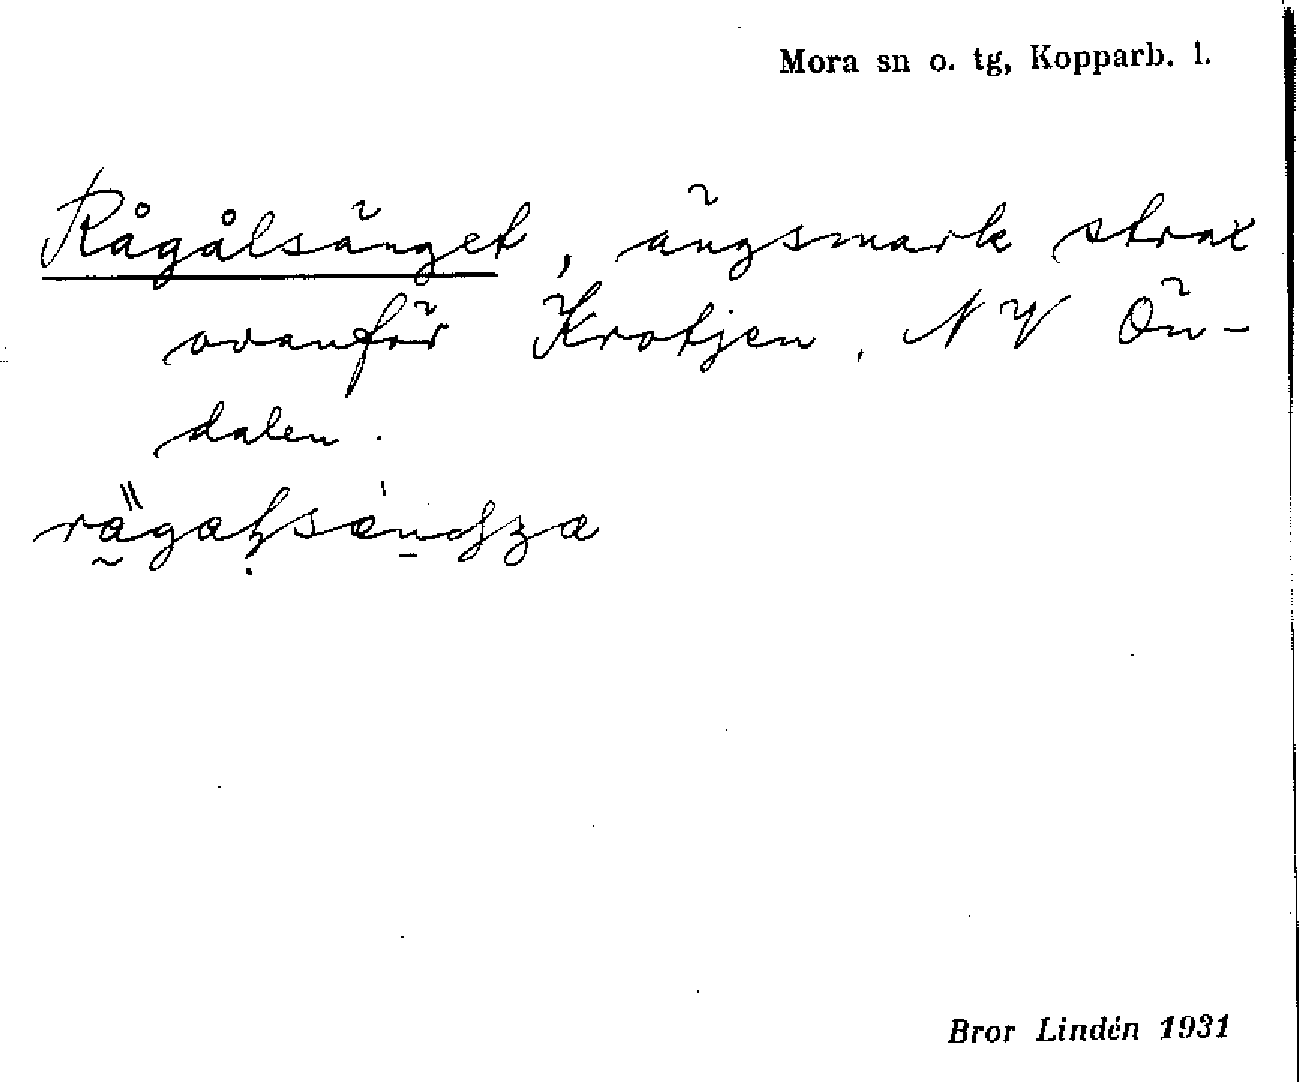 Mora sn o. tg, Kopparb. l.
Rågålsänget, ängsmark strax
ovanför Krotjen. NV Ön-
dalen.
Bror Lindén 1931